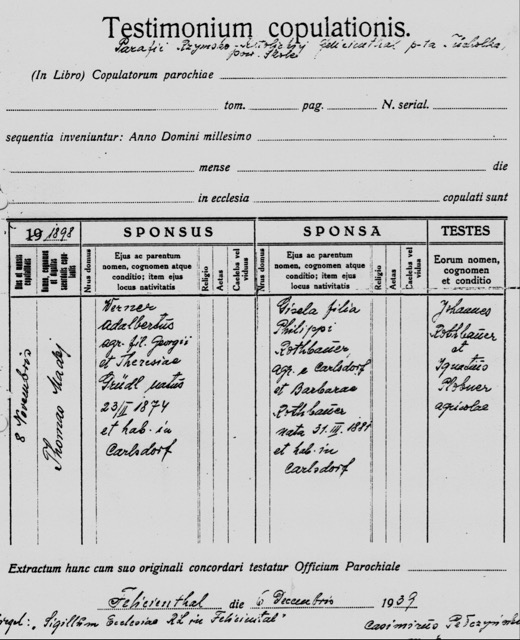 Testimonium copulationis.
Parafii Rzymsko-Katolickiej Felicienthal p-ta
(In Libro) Copulatorum parochiae
tom. pag. N. serial.
sequentia inveniuntur: Anno Domini millesimo
mense die
in ecclesia copulati sunt
19 1898
SPONSUS
SPONSA
TESTES
Nrus domus
Ejus ac parentum
nomen, cognomen atque
conditio; item ejus
locus nativitatis
Religio
Aetas
Caelebs vel
viduus
Nrus domus
Ejus ac parentum
nomen, cognomen atque
conditio; item ejus
locus nativitatis
Religio
Aetas
Caelebs vel
vidua
Eorum nomen,
cognomen
et conditio
8 Novembris
Thomas Madej
Werner
Adalbertus
agr. fil. Georgii
et Theresiae
Gründl natus
23/II 1874
et hab. in
Carlsdorf
Gisela filia
Philippi
Rothbauer,
agr. e Carlsdorf
et Barbarae
Rothbauer
nata 31. III. 1881
et hab. in
Carlsdorf
Johannes
Rothbauer
et
Ignatius
Plobner
agricolae
Extractum hunc cum suo originali concordari testatur Officium Parochiale
Felicienthal die 6 Decembris 1939
"Sigillum Ecclesiae R.L. in Felicintal"
Casimirus